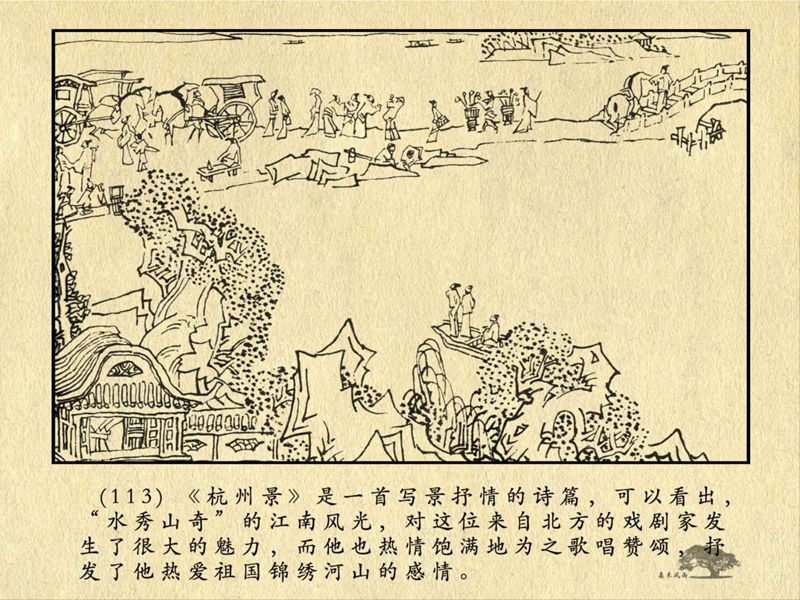 (113) 《杭州景》是一首写景抒情的诗篇，可以看出，
“水秀山奇”的江南风光，对这位来自北方的戏剧家发
生了很大的魅力，而他也热情饱满地为之歌唱赞颂，抒
发了他热爱祖国锦绣河山的感情。